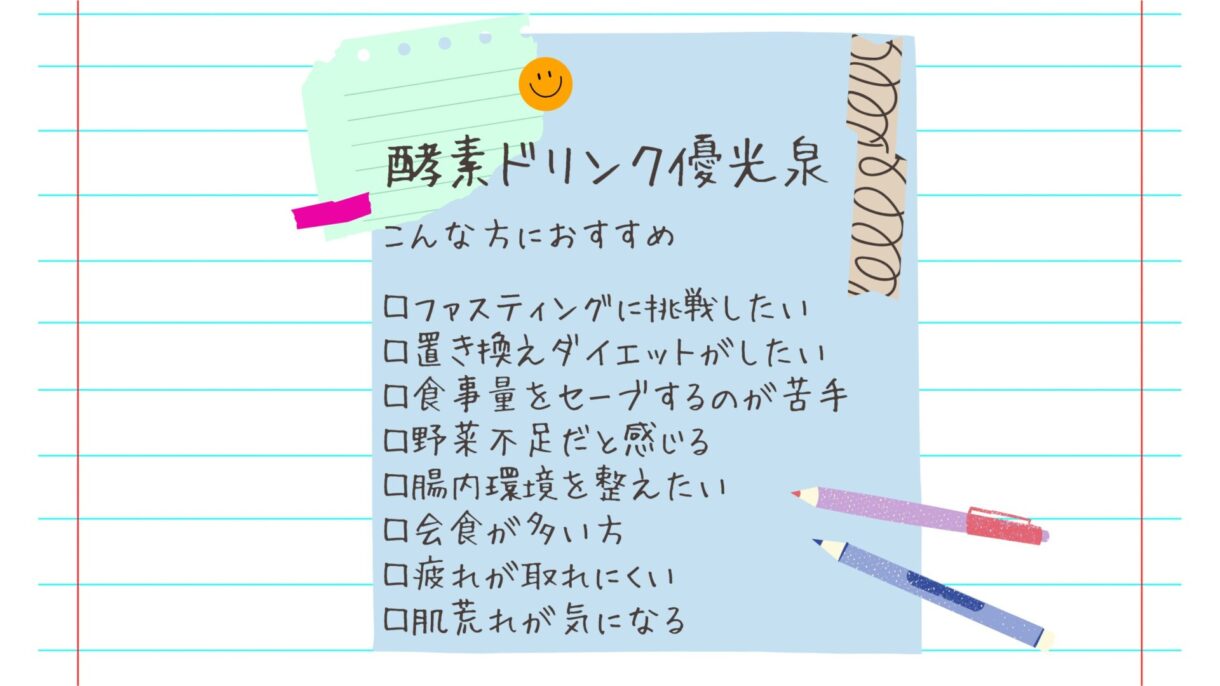 酵素ドリンク優光泉
こんな方におすすめ
□ファスティングに挑戦したい
□置き換えダイエットがしたい
□食事量をセーブするのが苦手
□野菜不足だと感じる
□腸内環境を整えたい
□会食が多い方
□疲れが取れにくい
□肌荒れが気になる